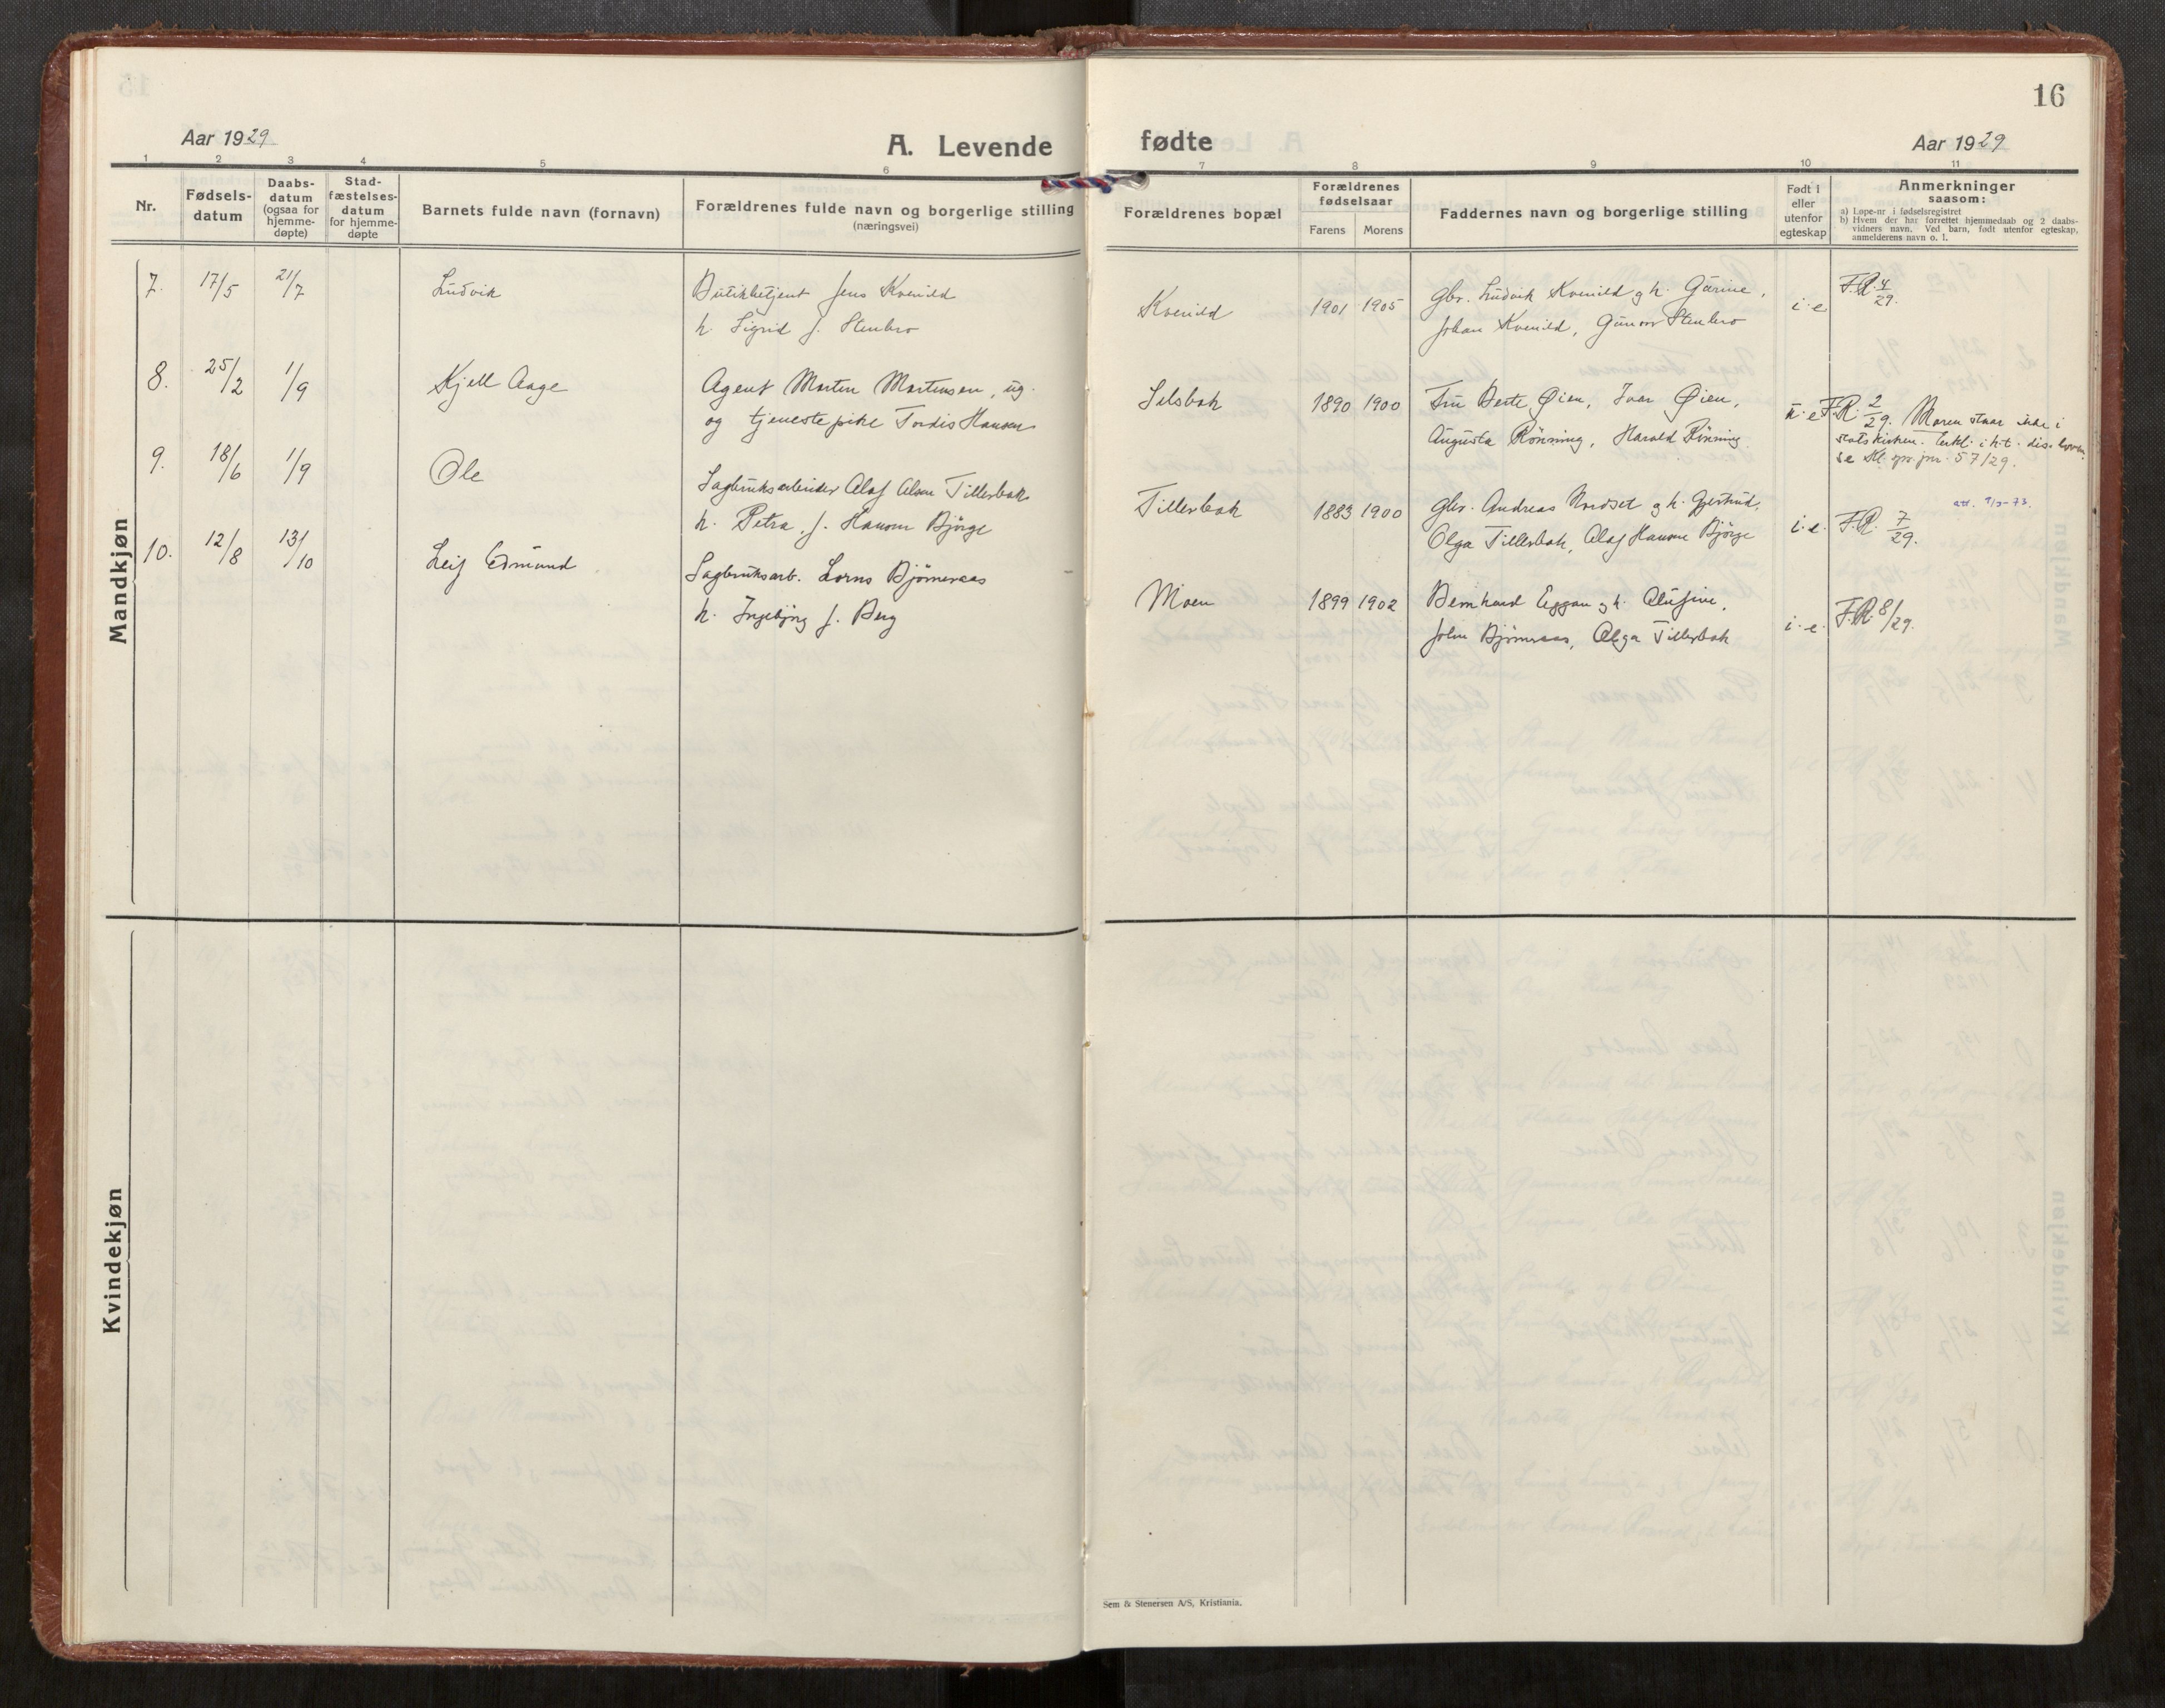 16
Aar 1929
A. Levende
fødte
Aar 1929
1 2 3 4 5 6 7 8 9 10 11
Nr.
Fødsels-
datum
Daabs-
datum
(ogsaa for
hjemme-
døpte)
Stad-
fæstelses-
datum
for hjemme-
døpte
Barnets fulde navn (fornavn)
Forældrenes fulde navn og borgerlige stilling
(næringsvei)
Forældrenes bopæl
Forældrenes
fødselsaar
Farens Morens
Faddernes navn og borgerlige stilling
Født i
eller
utenfor
egteskap
Anmerkninger
saasom:
a) Løpe-nr i fødselsregistret
b) Hvem der har forrettet hjemmedaab og 2 daabs-
vidners navn. Ved barn, født utenfor egteskap,
anmelderens navn o. l.
Mandkjøn
7. 17/5 21/7 Ludvik Butikbetjent Jens Kvenild
h. Sigrid f. Stenbro
Kvenild 1901 1905 Gbr. Ludvik Kvenild og h. Gurine,
Johan Kvenild, Gunvor Stenbro
i. e. F.R. 4/29.
8. 25/2 1/9 Kjell Aage Agent Morten Mortensen, ug.
og tjenestepike Tordis Hansen
Selsbak 1890 1900 Fru Berte Øien, Ivar Øien,
Augusta Rönning, Harald Rönning
u. e. F.R. 2/29. Moren staar ikke i
statskirken. Erkl. i h.t. dis. loven
se Kl. jnr. 57/29.
9. 18/6 1/9 Ole Sagbruksarbeider Olaf Olsen Tillerbak
h. Petra, f. Hansen Björge
Tillerbak 1883 1900 Gbr. Andreas Nordset og h. Gjertrud,
Olga Tillerbak, Olaf Hansen Björge
i. e. F.R. 7/29.
att. 9/3-73.
10. 12/8 13/10 Leif Edmund Sagbruksarb. Lorns Björneraas
h. Ingebjörg f. Berg
Moen 1899 1902 Bernhard Eggan og h. Olufine,
John Björneraas, Olga Tillerbak
i. e. F.R. 8/29.
Kvindekjøn
Sem & Stenersen A/S, Kristiania.